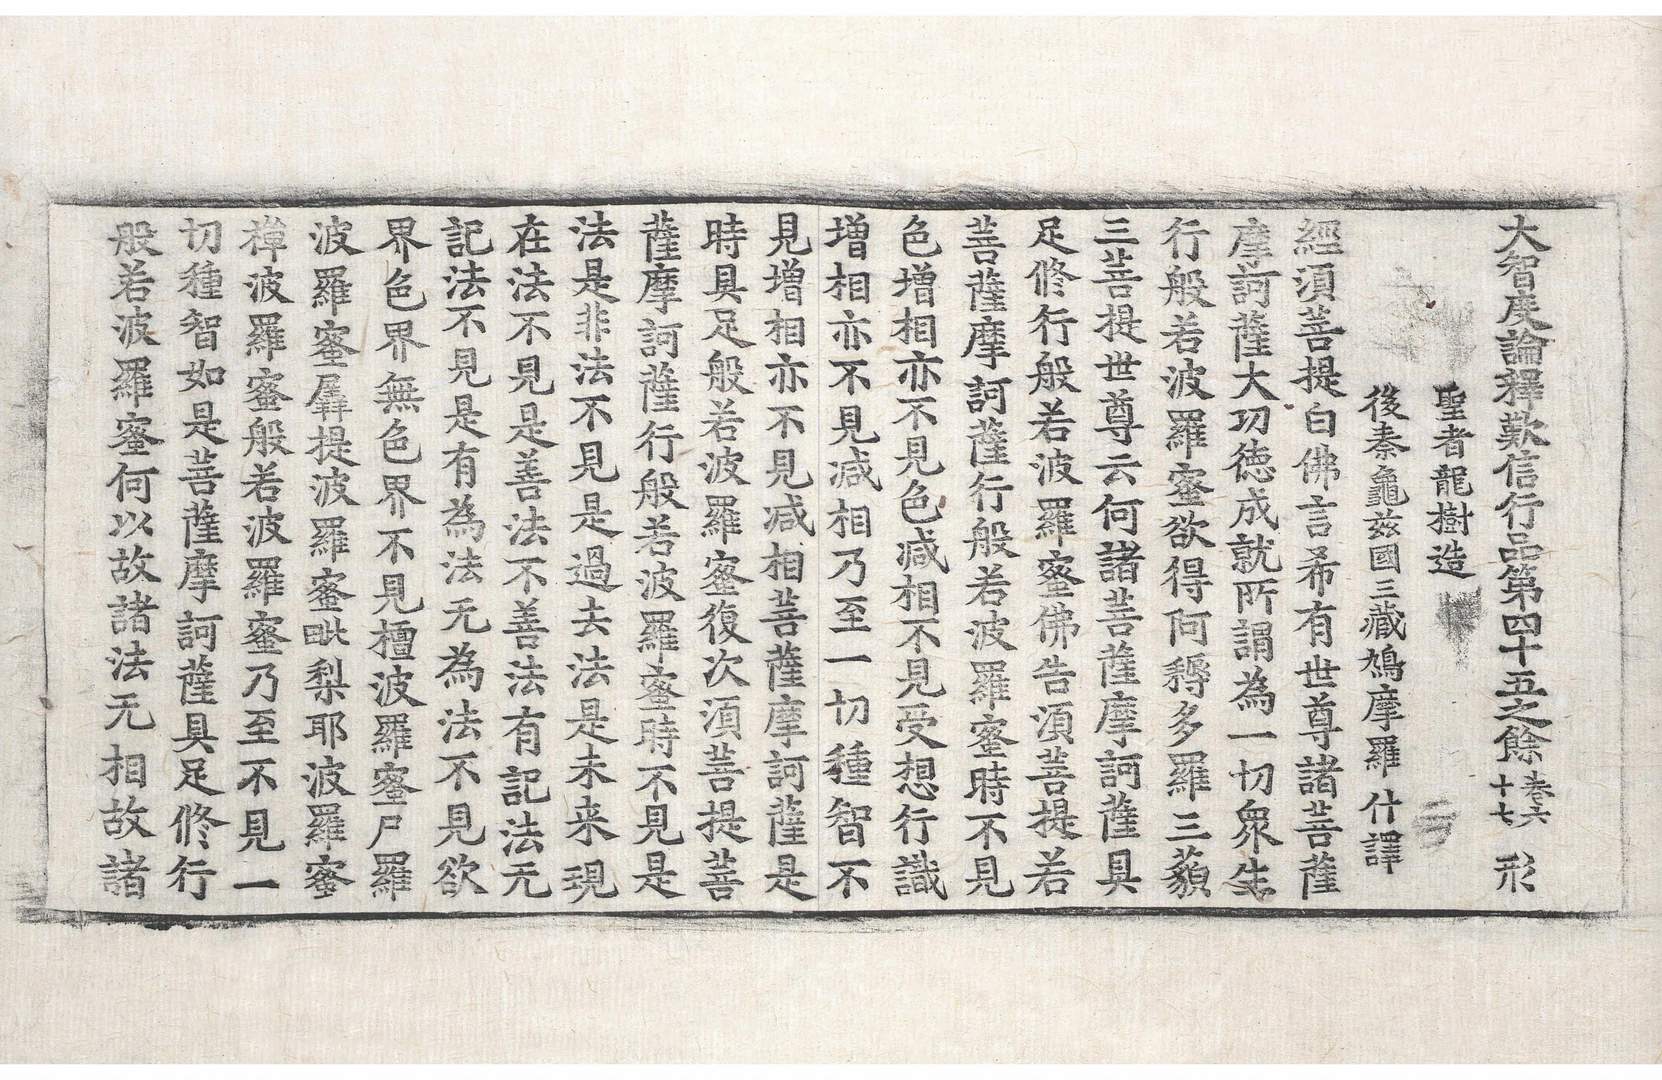 大智度論釋歎信行品第四十五之餘 卷六十七 形
聖者龍樹造
後秦龜茲國三藏鳩摩羅什譯
經須菩提白佛言希有世尊諸菩薩
摩訶薩大功德成就所謂為一切眾生
行般若波羅蜜欲得阿耨多羅三藐
三菩提世尊云何諸菩薩摩訶薩具
足修行般若波羅蜜佛告須菩提若
菩薩摩訶薩行般若波羅蜜時不見
色增相亦不見色減相不見受想行識
增相亦不見減相乃至一切種智不
見增相亦不見減相菩薩摩訶薩是
時具足般若波羅蜜復次須菩提菩
薩摩訶薩行般若波羅蜜時不見是
法是非法不見是過去法是未來現
在法不見是善法不善法有記法无
記法不見是有為法无為法不見欲
界色界無色界不見檀波羅蜜尸羅
波羅蜜羼提波羅蜜毗梨耶波羅蜜
禪波羅蜜般若波羅蜜乃至不見一
切種智如是菩薩摩訶薩具足修行
般若波羅蜜何以故諸法无相故諸